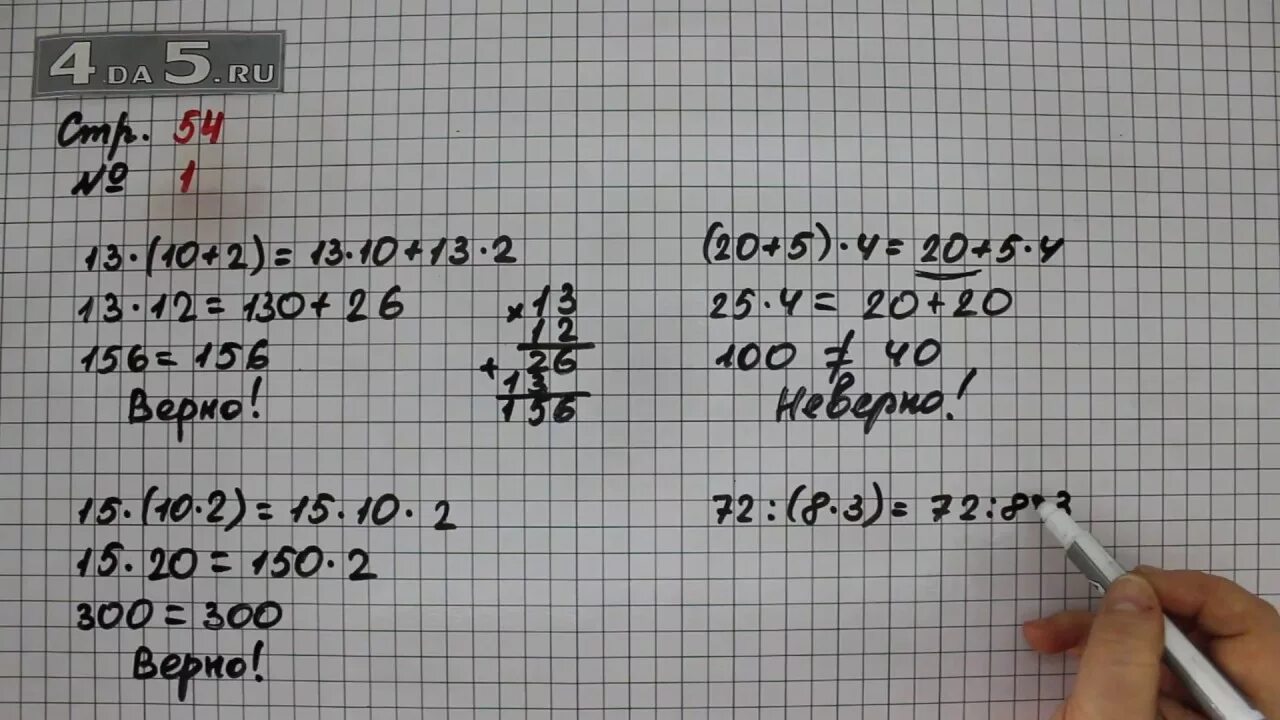 4DA5.RU
Стр. 54
№ 1
13·(10+2)=13·10+13·2
13·12=130+26
156=156
Верно!
×13
12
+26
13
156
(20+5)·4=20+5·4
25·4=20+20
100≠40
Неверно!
15·(10·2)=15·10·2
15·20=150·2
300=300
Верно!
72:(8·3)=72:8